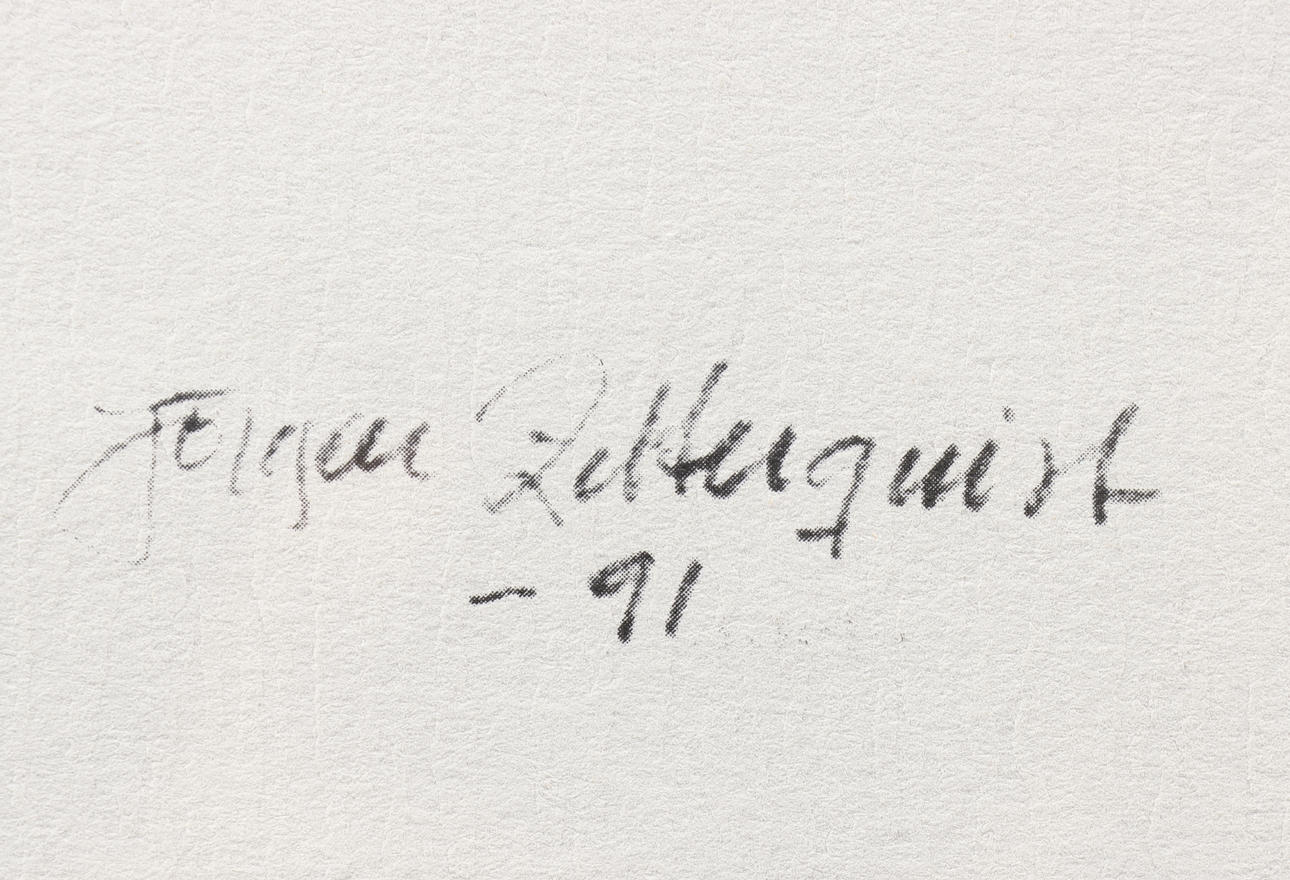 Jörgen Zetterquist
- 91